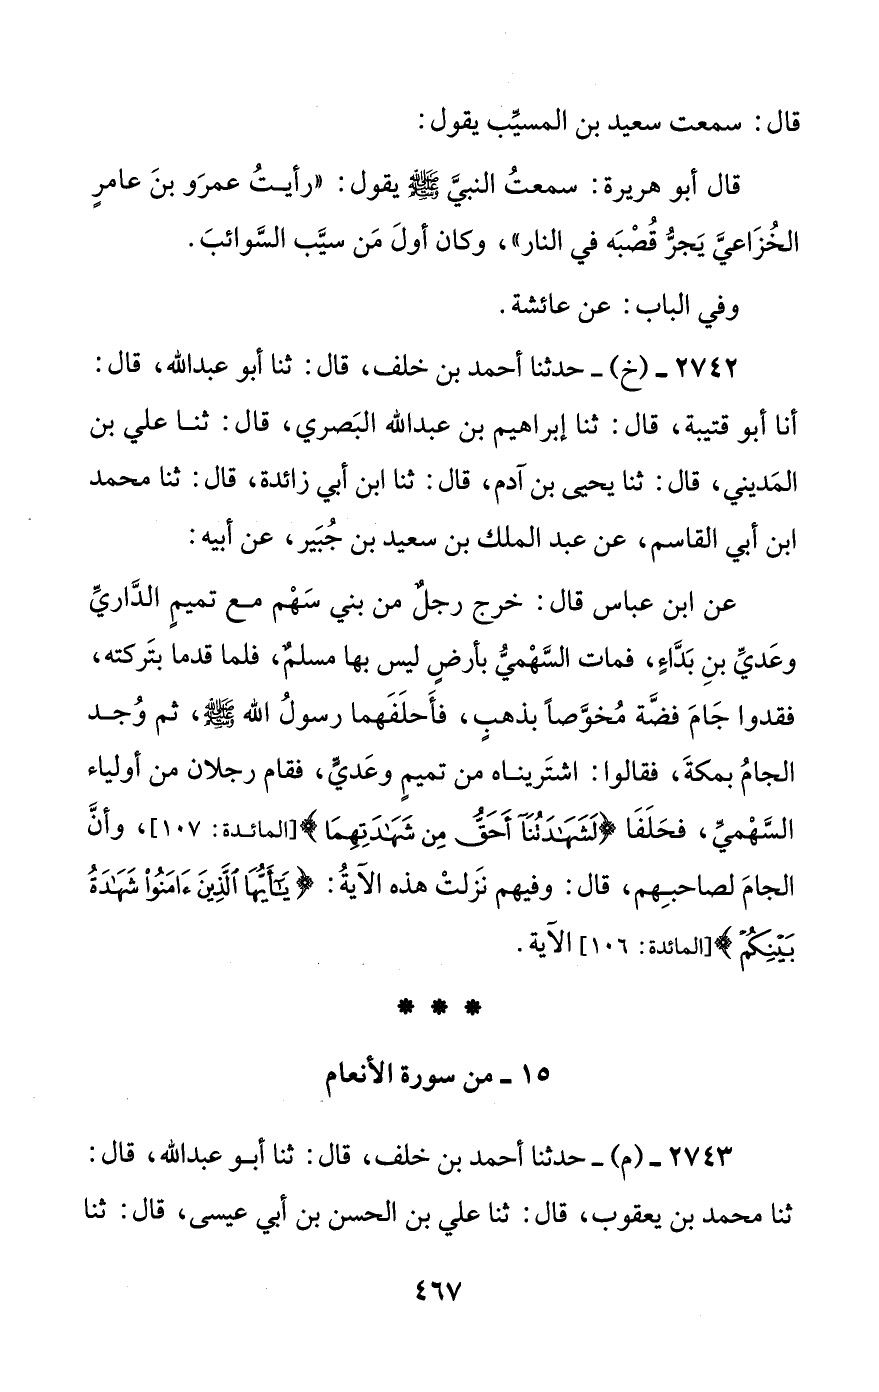 قال: سمعت سعيد بن المسيِّب يقول:
قال أبو هريرة: سمعتُ النبيَّ ﷺ يقول: «رأيتُ عمرَو بنَ عامرٍ
الخُزَاعيَّ يَجرُّ قُصْبَه في النار»، وكان أولَ مَن سيَّب السَّوائبَ.
وفي الباب: عن عائشة.
٢٧٤٢ ـ (خ) ـ حدثنا أحمد بن خلف، قال: ثنا أبو عبدالله، قال:
أنا أبو قتيبة، قال: ثنا إبراهيم بن عبدالله البَصري، قال: ثنا علي بن
المَديني، قال: ثنا يحيى بن آدم، قال: ثنا ابن أبي زائدة، قال: ثنا محمد
ابن أبي القاسم، عن عبد الملك بن سعيد بن جُبَير، عن أبيه:
عن ابن عباس قال: خرج رجلٌ من بني سَهْم مع تميمٍ الدَّاريِّ
وعَديِّ بنِ بَدَّاءٍ، فمات السَّهْميُّ بأرضٍ ليس بها مسلمٌ، فلما قدما بتَركته،
فقدوا جَامَ فضَّة مُخوَّصاً بذهبٍ، فأَحلَفَهما رسولُ الله ﷺ، ثم وُجد
الجامُ بمكةَ، فقالوا: اشتَريناه من تميمٍ وعَديٍّ، فقام رجلان من أولياء
السَّهْميِّ، فحَلَفَا ﴿لَشَهَٰدَتُنَآ أَحَقُّ مِن شَهَٰدَتِهِمَا﴾[المائدة: ١٠٧]، وأنَّ
الجامَ لصاحبِهم، قال: وفيهم نزَلتْ هذه الآيةُ: ﴿يَٰٓأَيُّهَا ٱلَّذِينَ ءَامَنُوا۟ شَهَٰدَةُ
بَيْنِكُمْ﴾[المائدة: ١٠٦] الآية.
* * *
١٥ ـ من سورة الأنعام
٢٧٤٣ ـ (م) ـ حدثنا أحمد بن خلف، قال: ثنا أبو عبدالله، قال:
ثنا محمد بن يعقوب، قال: ثنا علي بن الحسن بن أبي عيسى، قال: ثنا
٤٦٧